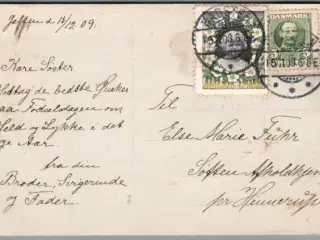 15/12 09.
Kære Søster
Modtag de bedste Ønsker
paa Fødselsdagen om
Held og Lykke i det
ny Aar.
fra din
Broder, Svigerinde
og Fader.
Til
Else Marie Führ
Søften Afholdshjem
pr Hinnerup
DANMARK